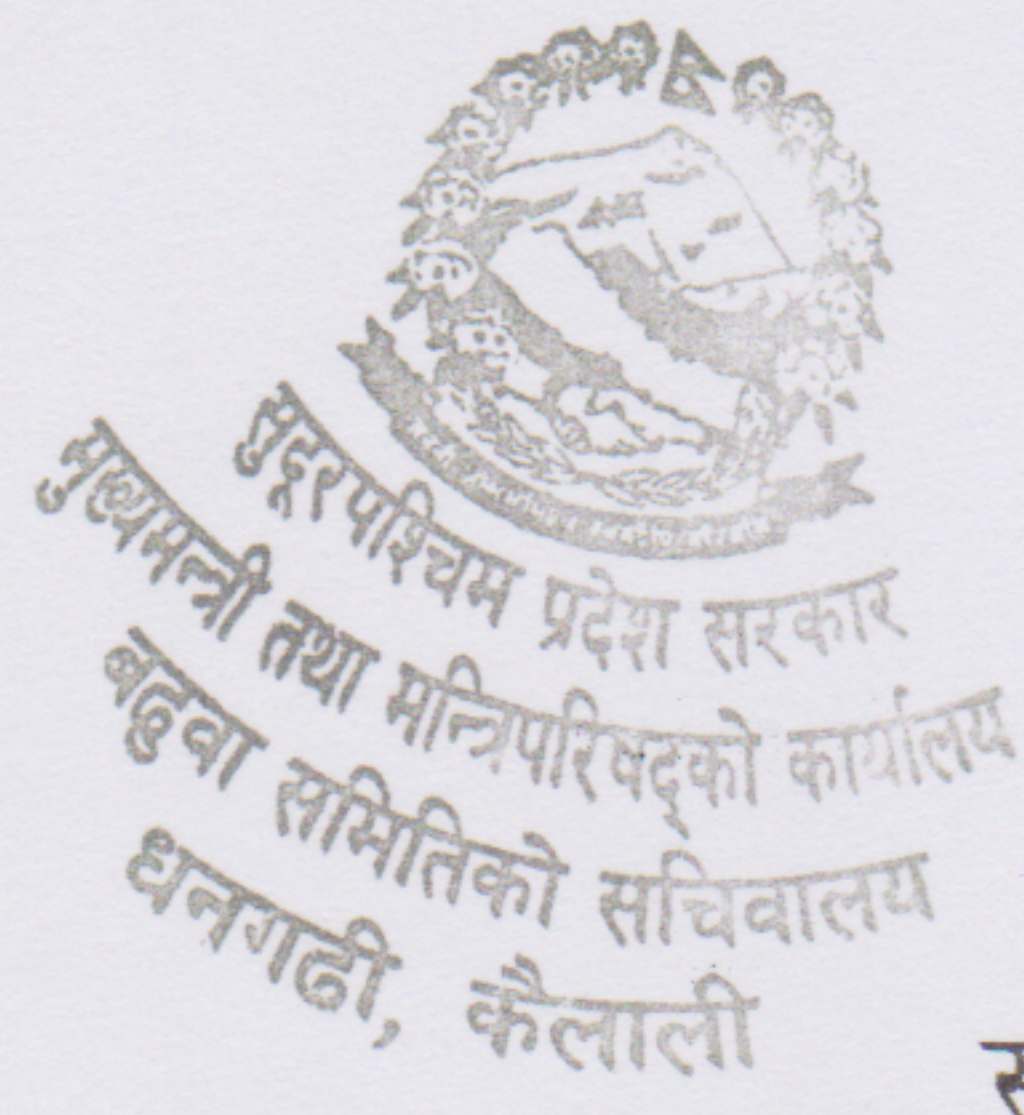 सुदूरपश्चिम प्रदेश सरकार
मुख्यमन्त्री तथा मन्त्रिपरिषद्को कार्यालय
बढुवा समितिको सचिवालय
धनगढी, कैलाली